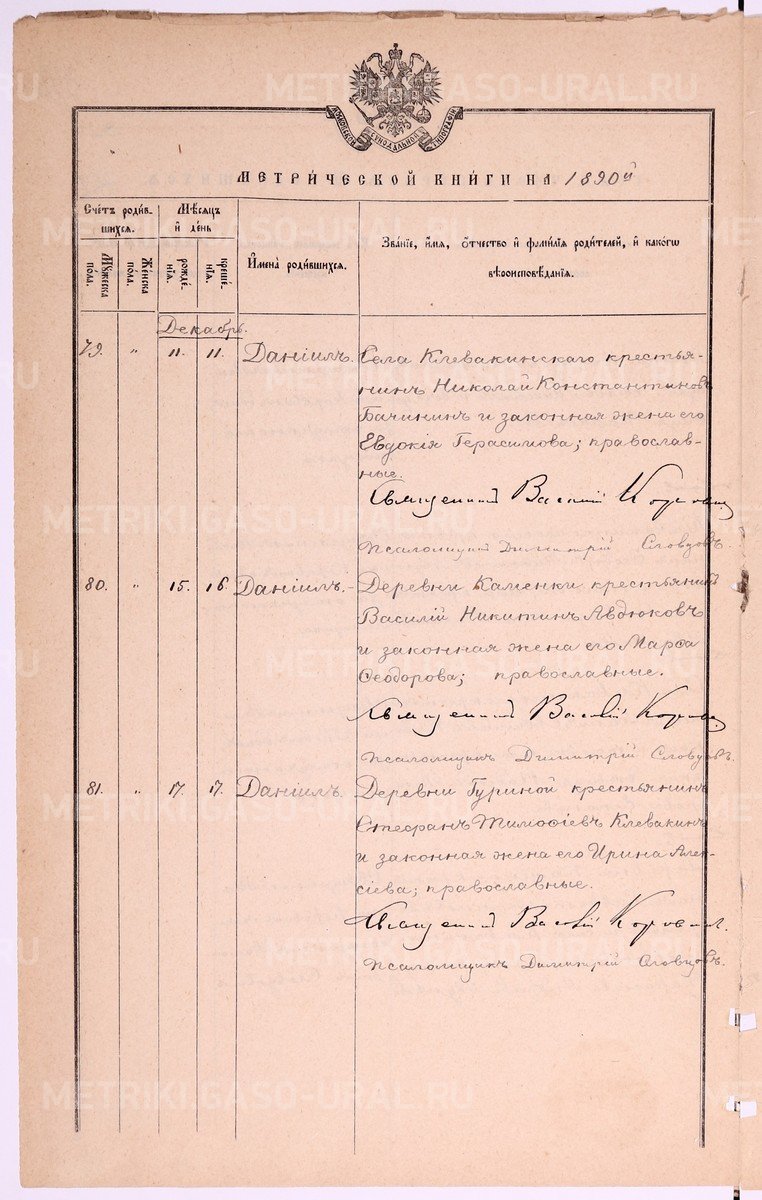 МОСКОВСКОЙ СУНОДАЛЬНОЙ ТИПОГРАФІИ
МЕТРИ́ЧЕСКОЙ КНИ́ГИ НА 1890й
Сче́тъ роди́в-
шихся.
Мѣ́сяцъ
и҆ де́нь
И҆мена̀ роди́вшихся.
Зва́нїе, и҆́мя, ѻ҆́тчество и҆ фами́лїя роди́телей, и҆ како́гѡ
вѣроисповѣ́данїя.
Мꙋ́жеска
по́ла.
Же́нска
по́ла.
рожде́-
нїя.
креще́-
нїя.
Декабрь.
79. " 11. 11. Даніилъ. Села Клевакинскаго крестья-
нинъ Николай Константиновъ
Бачининъ и законная жена его
Евдокія Герасимова; православ-
ные.
Священникъ Василій
Псаломщикъ Димитрій Словцовъ.
80. " 15. 16. Даніилъ. Деревни Каменки крестьянинъ
Василій Никитинъ Авдюковъ
и законная жена его Марѳа
Ѳеодорова; православные.
Священникъ Василій
Псаломщикъ Димитрій Словцовъ.
81. " 17. 17. Даніилъ. Деревни Гуриной крестьянинъ
Стефанъ Тимоѳіевъ Клевакинъ
и законная жена его Ирина Алек-
сіева; православные.
Священникъ Василій
Псаломщикъ Димитрій Словцовъ.
METRIKI.GASO-URAL.RU